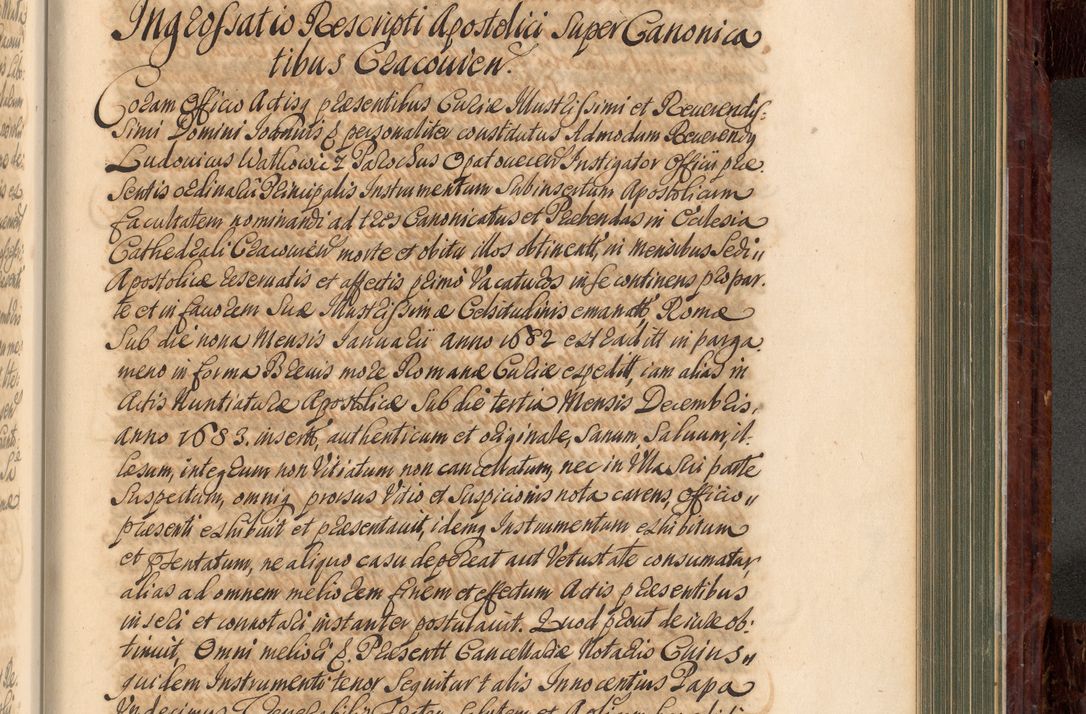 Ingrossatio Rescripti Apostolici Super Canonica
tibus Cracovien.
Coram Officio Actisq presentibus Curiæ Illustrissimi et Reverendis-
simi Domini personaliter constitutus Admodum Reverendus
Ludovicus Watkowicz Parochus Opatovecen Instigator Officii præ
sentis ordinarii Principalis Instrumentum Subinsertum Apostolicum
facultatem nominandi ad tres Canonicatus et Præbendas in Ecclesia
Cathedrali Cracovien morte et obitu illos obtinentt, in mensibus Sedi„
Apostolicæ reservatis et affectis primo Vacaturos in se continens pro par.
te et in favorem Suæ Illustrissimæ Celsitudinis emanatt Romæ
Sub die nona Mensis Januarii anno 1682 est in parga
meno in forma Brevis more Romanæ Curiæ expeditt, iam alias in
Actis Nuntiaturæ Apostolicæ Sub die tertia Mensis Decembris,
anno 1683. insertt, authenticum et originale, Sanum, Salvum, il-
læsum, integrum non Vitiatum non cancellatum, nec in Ulla Sui parte
Suspectum, omniq prorsus Vitio et Suspicionis nota carens, Officio„
præsenti exhibuit et præsentavit, idemq Instrumentum exhibitum
et pręsentatum, ne aliquo casu depereat aut Vetustate consumatur
alias ad omnem meliorem finem et effectum Actis præsentibus
inseri et connotari instanter postulavit. Quod prout de iure ob-
tinuit, Omni meliori Præsentt Cancellariæ Notariis Cuius„
quidem Instrumenti tenor Sequitur talis Innocentius Papa
Undecimus Venerabilis Frater Salutem et